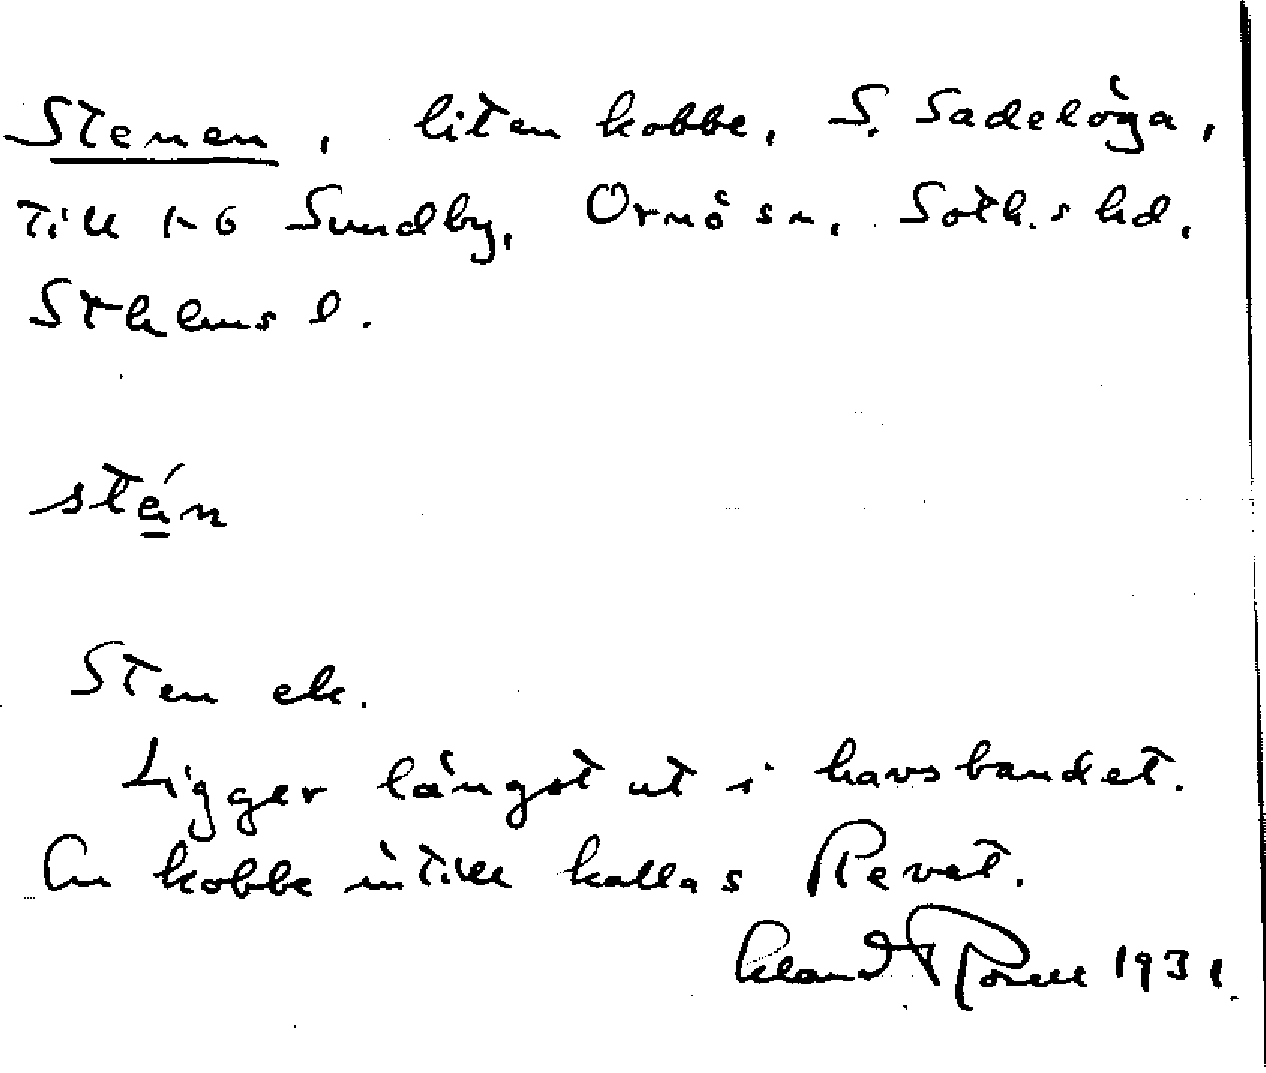 Stenen, liten kobbe, S. Sadelöga,
till 1-6 Sundby, Ornö sn, Soth.s hd,
Sthlms l.
stén
Sten ek.
Ligger längst ut i havsbandet.
En kobbe intill kallas Revet.
1931.